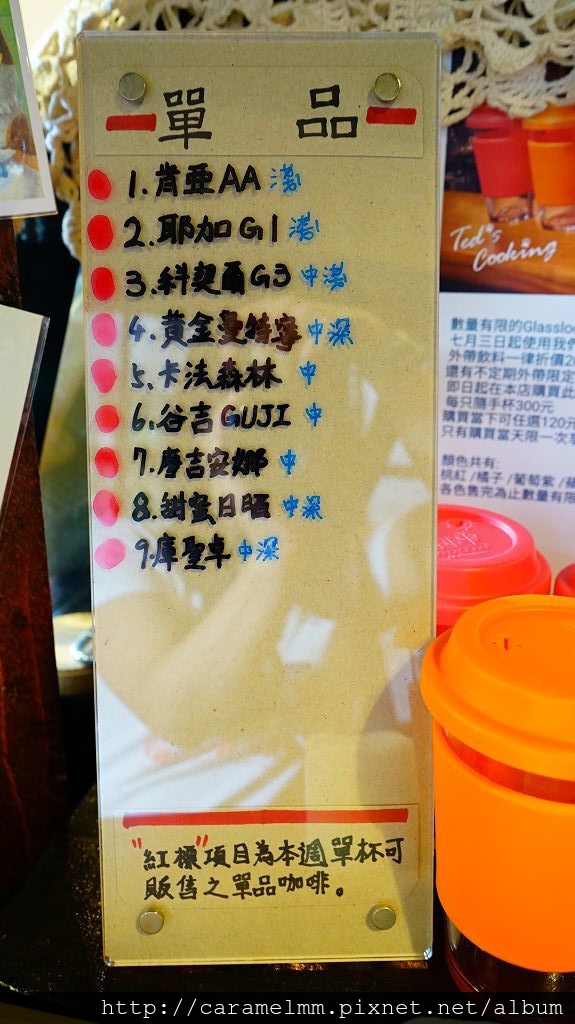 單 品
1.肯亞AA 淺
2.耶加G1 淺
3.斜契爾G3 中淺
4.黃金曼特寧 中深
5.卡法森林 中
6.谷吉GUJI 中
7.唐吉安娜 中
8.甜蜜日晒 中深
9.庫聖卓 中深
"紅標"項目為本週單杯可
販售之單品咖啡。
Ted's
Cooking
數量有限的Glasslo
七月三日起使用我們
外帶飲料一律折價2
還有不定期外帶限定
即日起在本店購買此
每只隨手杯300元
購買當下可任選120元
只有購買當天限一次享
顏色共有:
桃紅 /橘子 /葡萄紫 /蘋
各色售完為止數量有限
http://caramelmm.pixnet.net/album